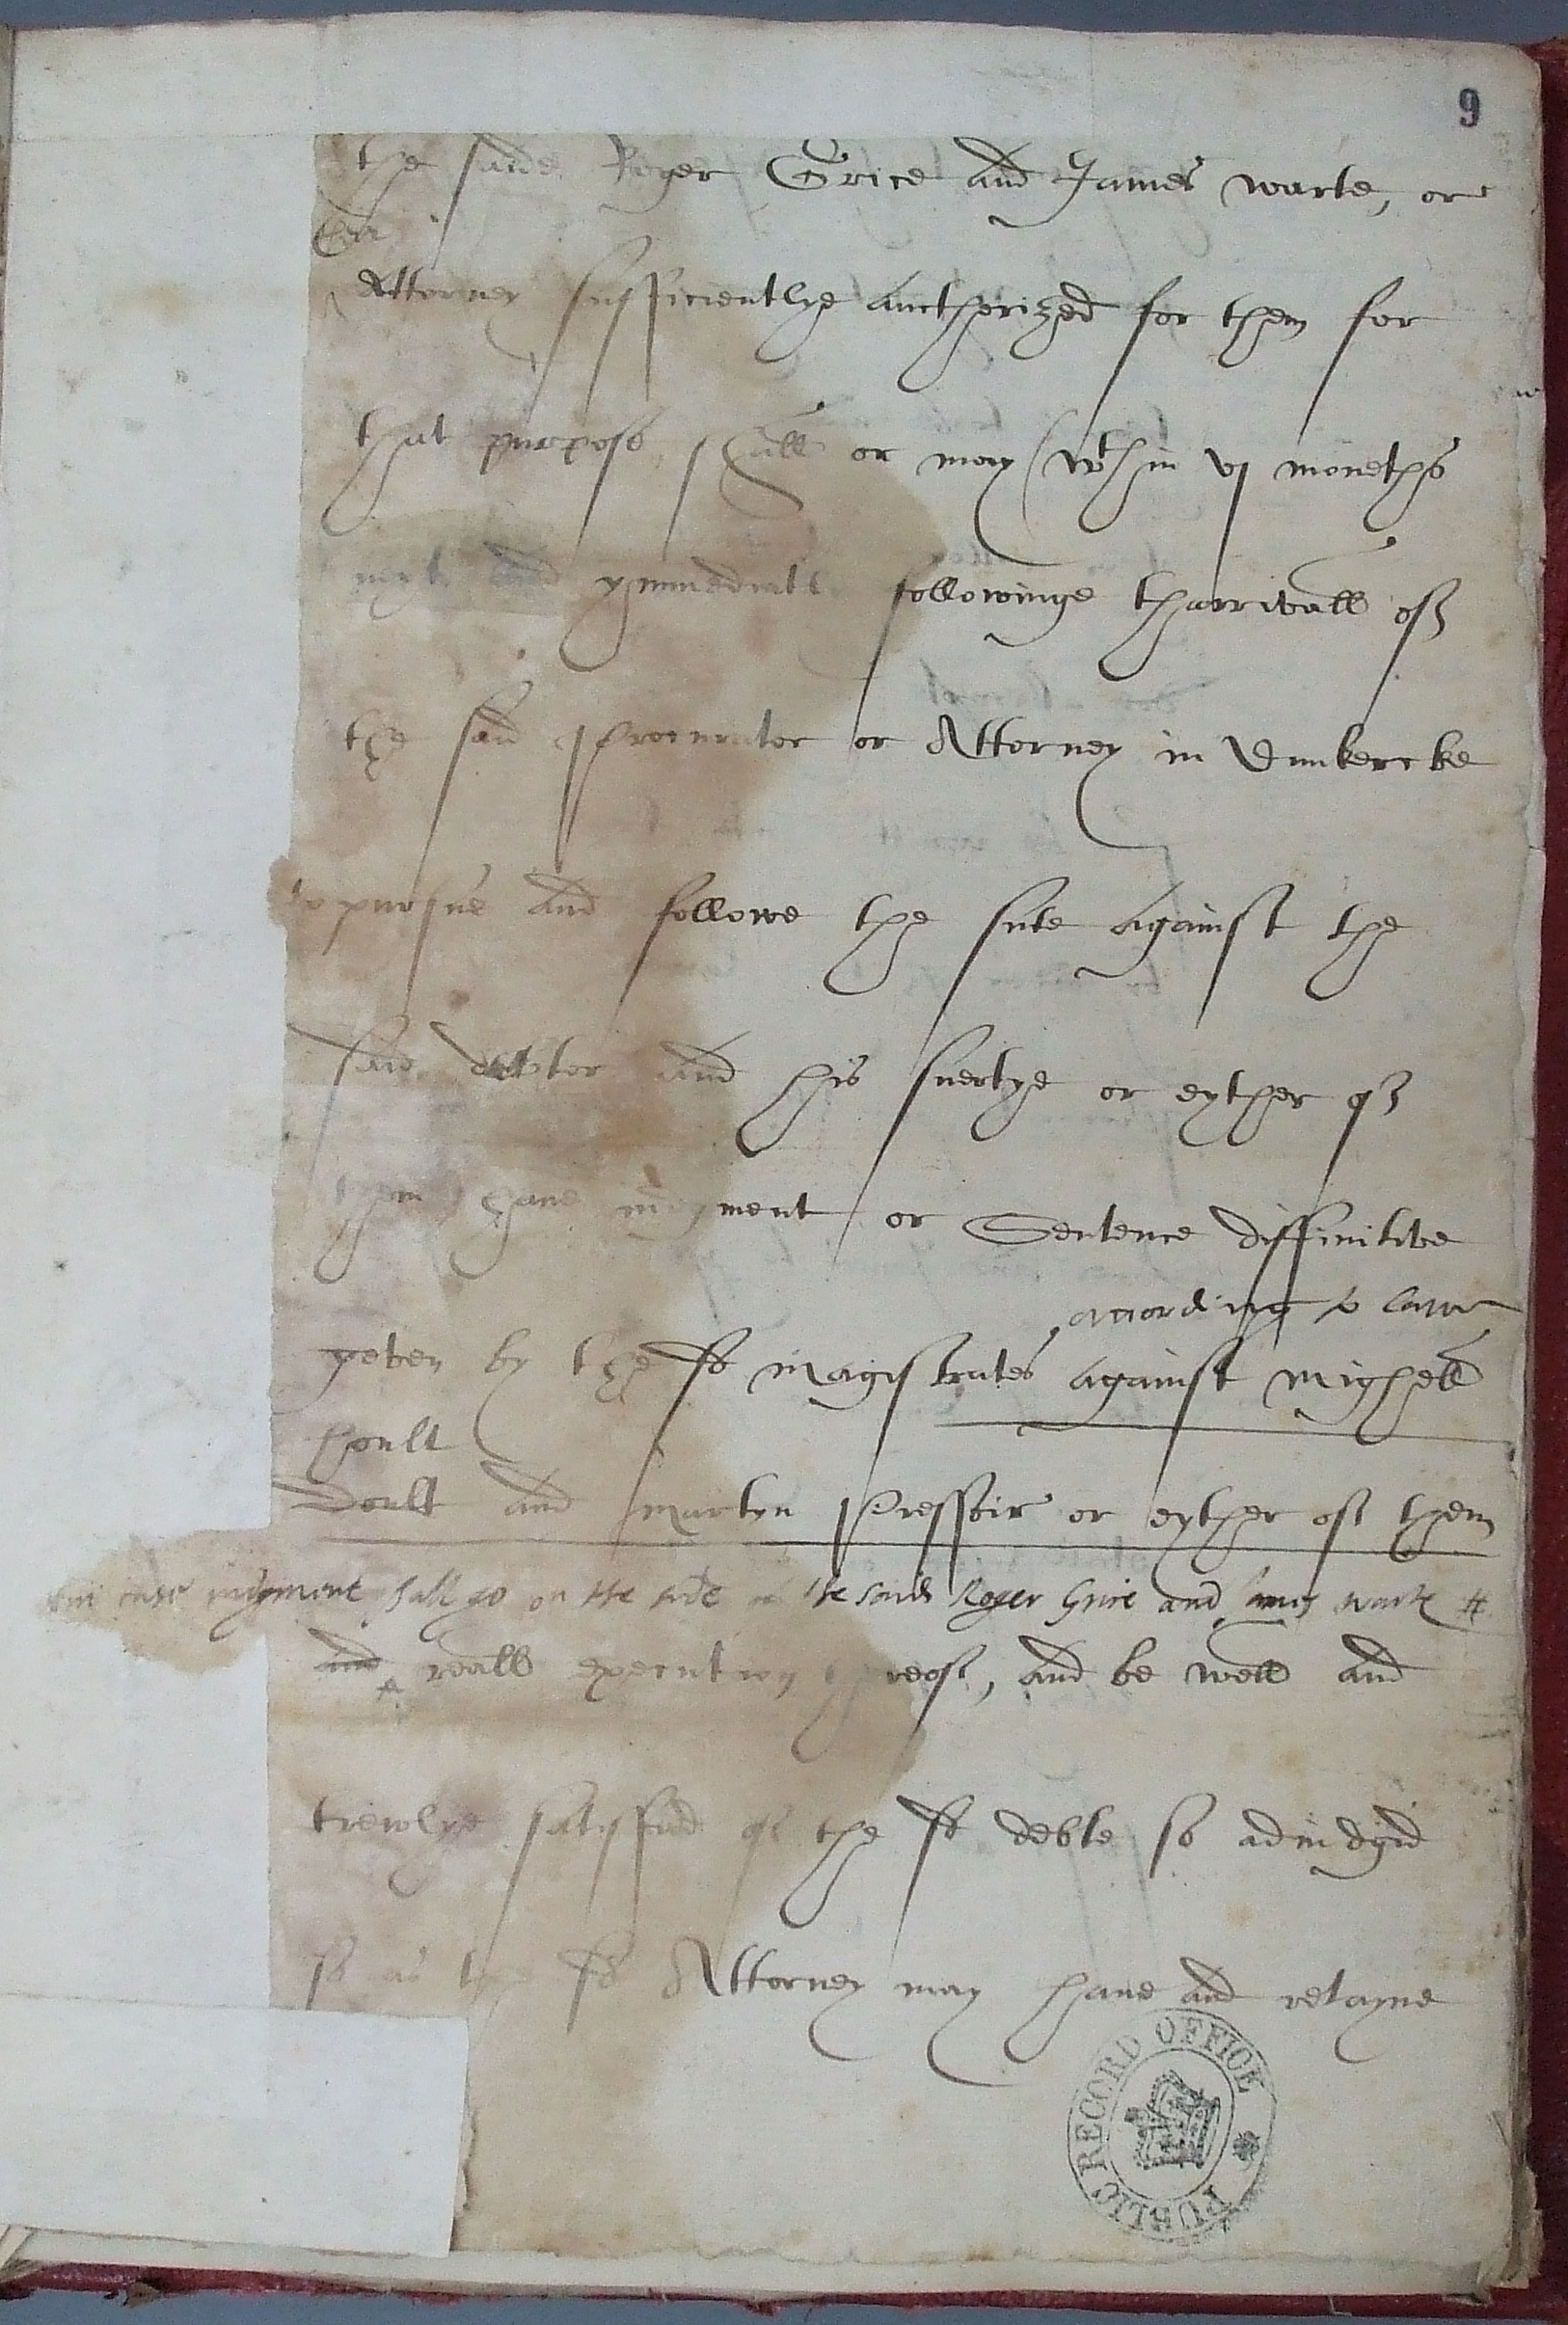 9
the saide Roger Grice and James warte, or
Attorney sufficientlye aucthorized for them for
that purpose, shall or may (wthin vj monethes
next and ymmediatl followinge tharrivall of
the said Procurator or Attorney in Dunkercke
to pursue and followe the sute against the
said debtor and his suertye or eyther of
them, have iudgment or Sentence diffinitive
according to lawe
yeven by the sd Magistrates against Mighell
hoult
Doult and Martyn Pressoir or eyther of them
in case iudgment shall go on the side of the said Roger Grice and James warte #
and reall execution thereof, and be well and
trewlye satisfied of the sd debte so adiudgid
so as the sd Attorney may have and retayne
PUBLIC RECORD OFFICE